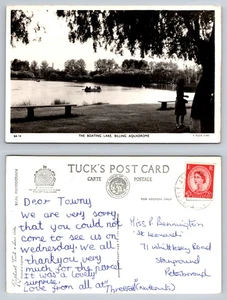 THE BOATING LAKE, BILLING AQUADROME
TUCK'S POST CARD
CARTE POSTALE
Dear Tawny
We are very sorry
that you could not
come to see us on
wednesday. we all
thankyou very
much for the parcel
It was a lovely
surprise.
Love from all at
Miss P Bennington
71 Whittlesey Road
Stanground
Peterborough